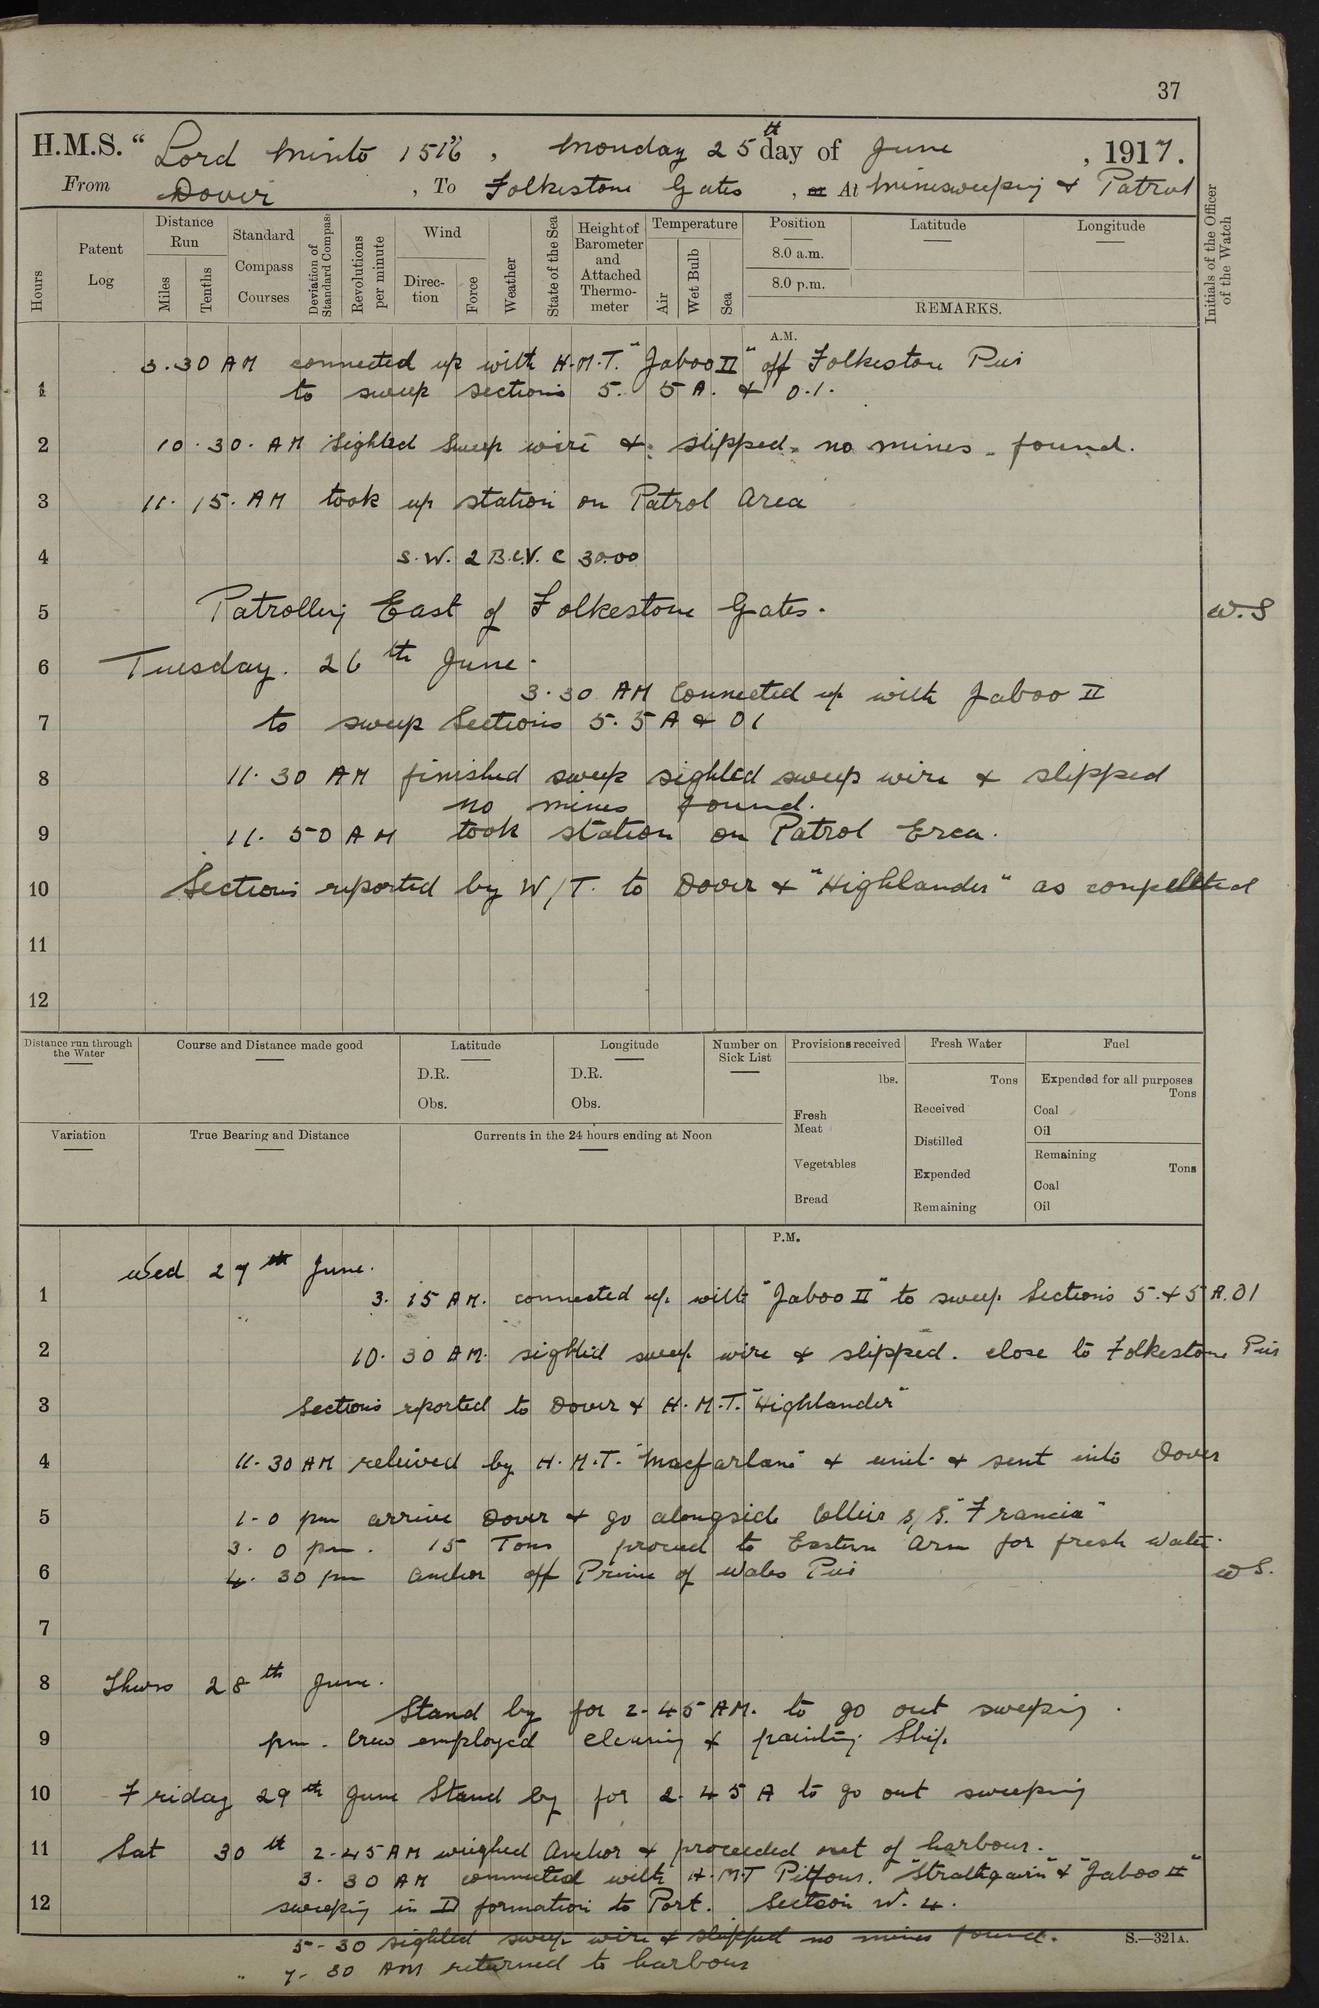 37
H.M.S. " Lord Minto 1516, Monday 25th day of June, 1917.
From Dover, To Folkestone Gates, or At Minesweeping & Patrol
Hours
Patent Log
Distance Run
Miles
Tenths
Standard Compass Courses
Deviation of Standard Compass
Revolutions per minute
Wind
Direction
Force
Weather
State of the Sea
Height of Barometer and Attached Thermometer
Temperature
Air
Wet Bulb
Sea
Position
8.0 a.m.
8.0 p.m.
Latitude
Longitude
REMARKS.
Initials of the Officer of the Watch
A.M.
3.30 AM connected up with H.M.T. "Jaboo II" off Folkestone Pier
1 to sweep sections 5. 5A. & 0.1.
2 10.30. AM Sighted Sweep wire & slipped. no mines found.
3 11.15. AM took up station on Patrol Area
4 S.W. 2 B.C.V. C 30.00
5 Patrolling East of Folkestone Gates. W.S
6 Tuesday. 26th June.
3.30 AM Connected up with Jaboo II
7 to sweep Sections 5. 5A & 01
8 11.30 AM finished sweep sighted sweep wire & slipped
no mines found.
9 11.50 AM took station on Patrol Erea.
10 Sections reported by W/T. to Dover & "Highlander" as
11
12
Distance run through the Water
Course and Distance made good
Latitude
D.R.
Obs.
Longitude
D.R.
Obs.
Number on Sick List
Provisions received
lbs.
Fresh Meat
Vegetables
Bread
Fresh Water
Tons
Received
Distilled
Expended
Remaining
Fuel
Expended for all purposes
Tons
Coal
Oil
Remaining
Tons
Coal
Oil
Variation
True Bearing and Distance
Currents in the 24 hours ending at Noon
P.M.
Wed 27th June.
1 3.15 AM. connected up with "Jaboo II" to sweep Sections 5. & 5A. 01
2 10.30 AM. sighted sweep wire & slipped. close to Folkestone Pier
3 Sections reported to Dover & H.M.T. "Highlander"
4 11.30 AM relieved by H.M.T. "Macfarlane" & unit & sent into Dover
5 1-0 pm arrive Dover & go alongside Collier s/s. "Francia"
3.0 pm. 15 Tons proceed to Eastern Arm for fresh water.
6 4.30 pm anchor off Prince of Wales Pier WS.
7
8 Thurs 28th June.
Stand by for 2.45 AM. to go out sweeping.
9 pm. Crew employed cleaning & painting Ship.
10 Friday 29th June Stand by for 2.45 A to go out sweeping
11 Sat 30th 2-45 AM weighed Anchor & proceeded out of harbour.
3.30 AM connected with H.M.T Pitfour. "Strathgairn" & "Jaboo II"
12 sweeping in D formation to Port. Section W. 4.
5-30 sighted sweep wire & slipped no mines found.
" 7-30 AM returned to harbour
S.—321A.